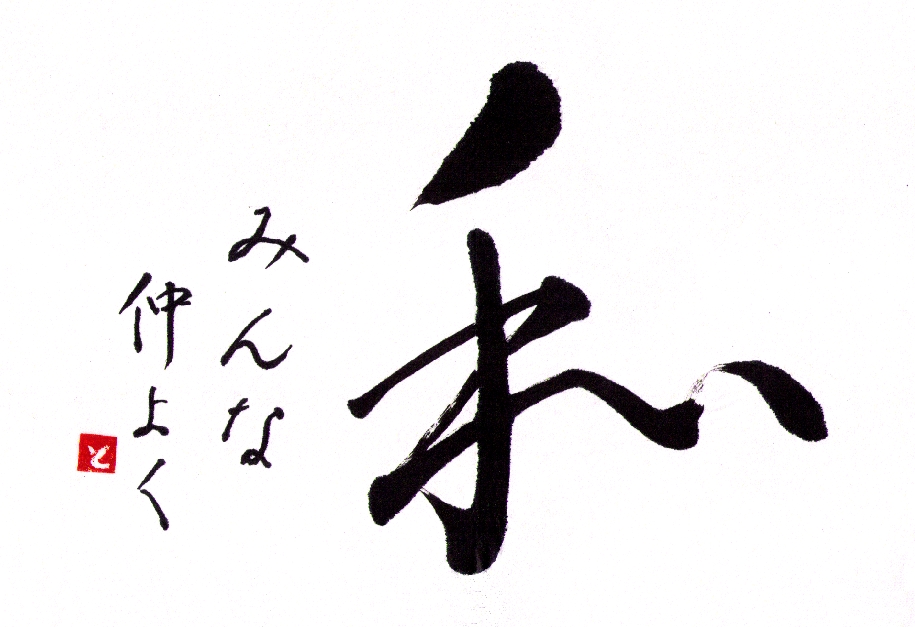 和
みんな
仲よく
と